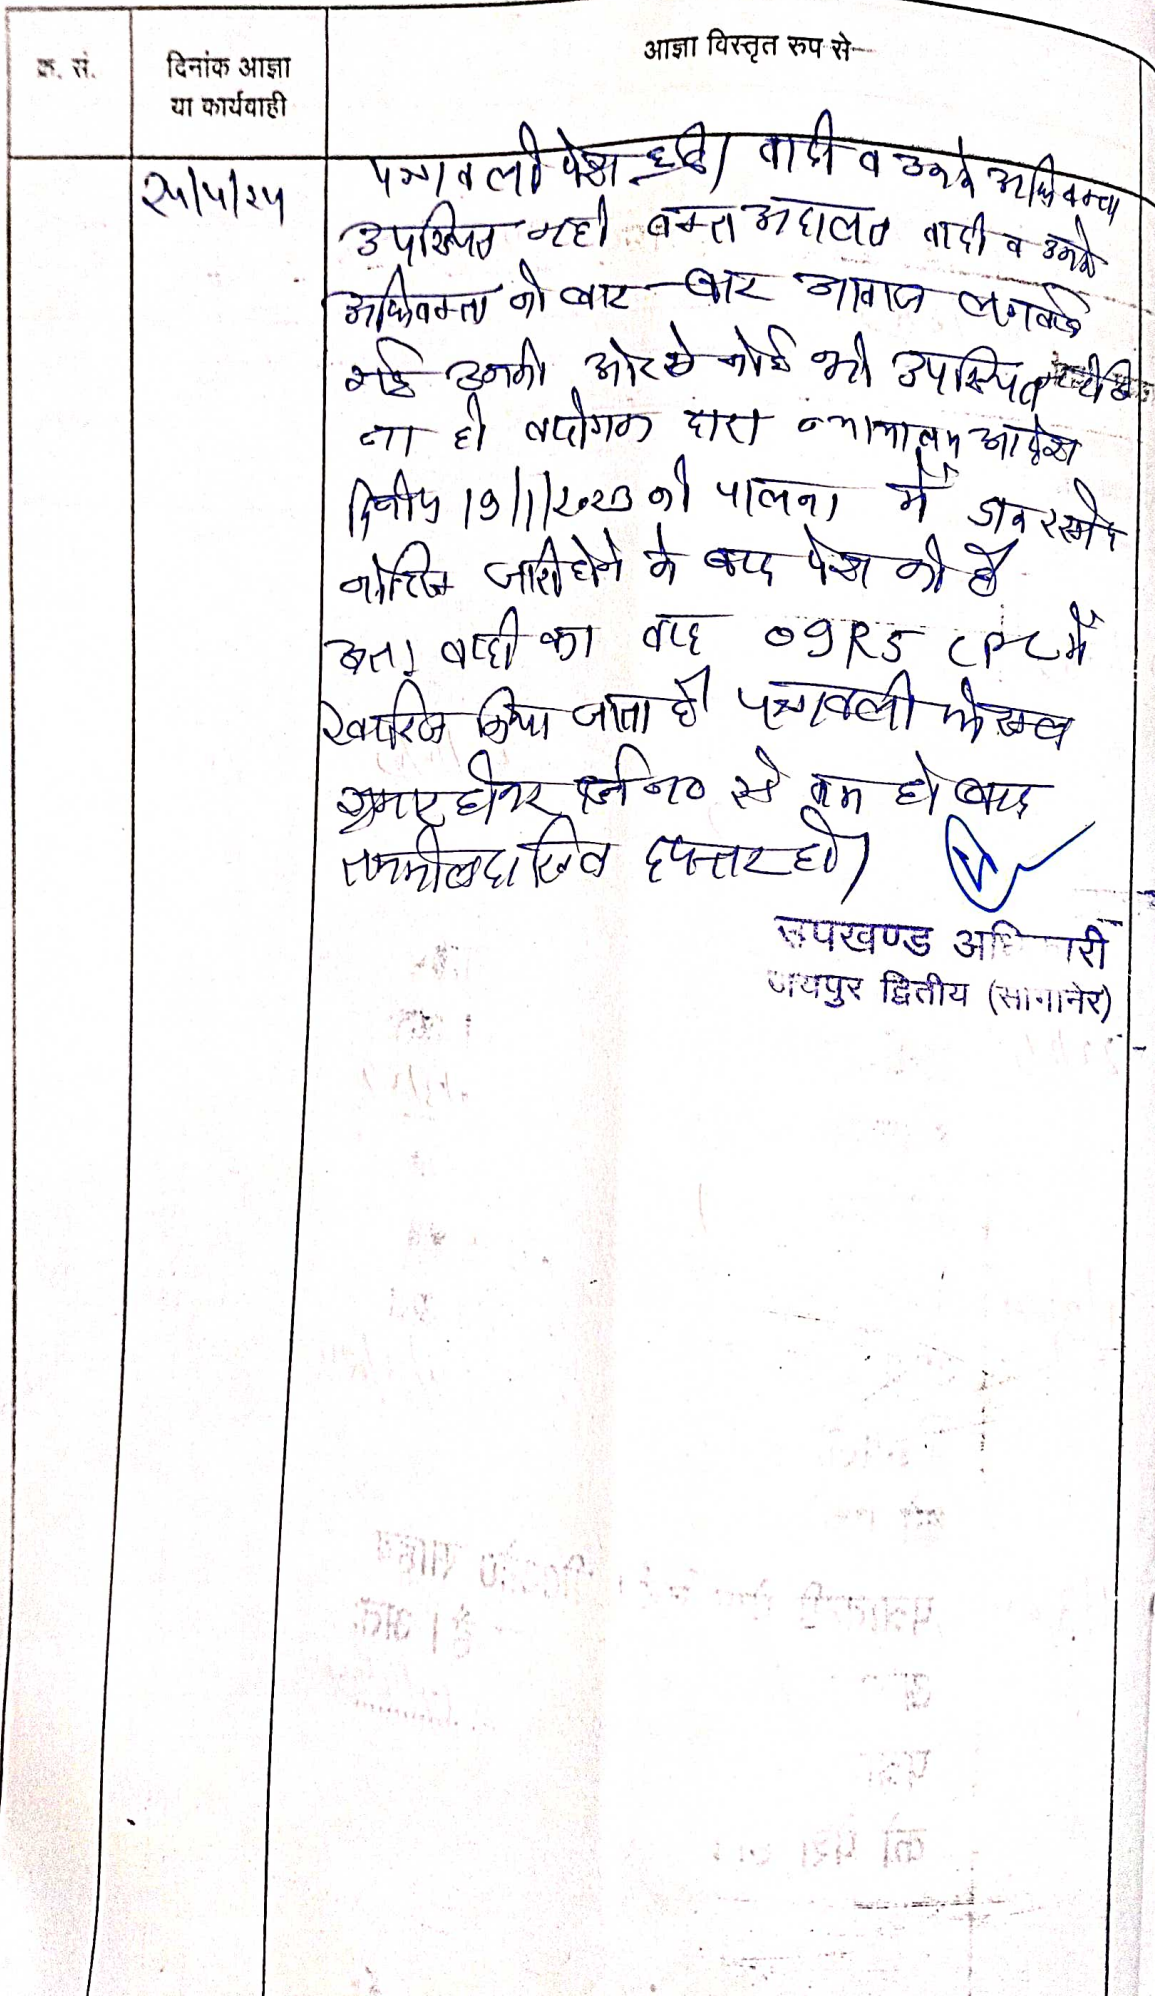 क्र. सं.
दिनांक आज्ञा
या कार्यवाही
आज्ञा विस्तृत रूप से—
पत्रावली पेश हुई। वादी व उनके अधिवक्ता
उपस्थित नही वक्त अदालत वादी व उनके
अधिवक्ता को बार-बार आवाज लगवाई
गई उनकी ओर से कोई भी उपस्थित
ना ही वादीगण द्वारा न्यायालय आदेश
दिनांक 19/1/2023 की पालना में डाक रसीद
नोटिस जारी होने के बाद पेश की है
अतः वादी का वाद O9R5 CPC में
खारिज किया जाता है। पत्रावली फैसल
शुमार होकर दर्ज न0 से कम हो बाद
तकमील दाखिल दफ्तर हो।
उपखण्ड अधिकारी
जयपुर द्वितीय (सांगानेर)